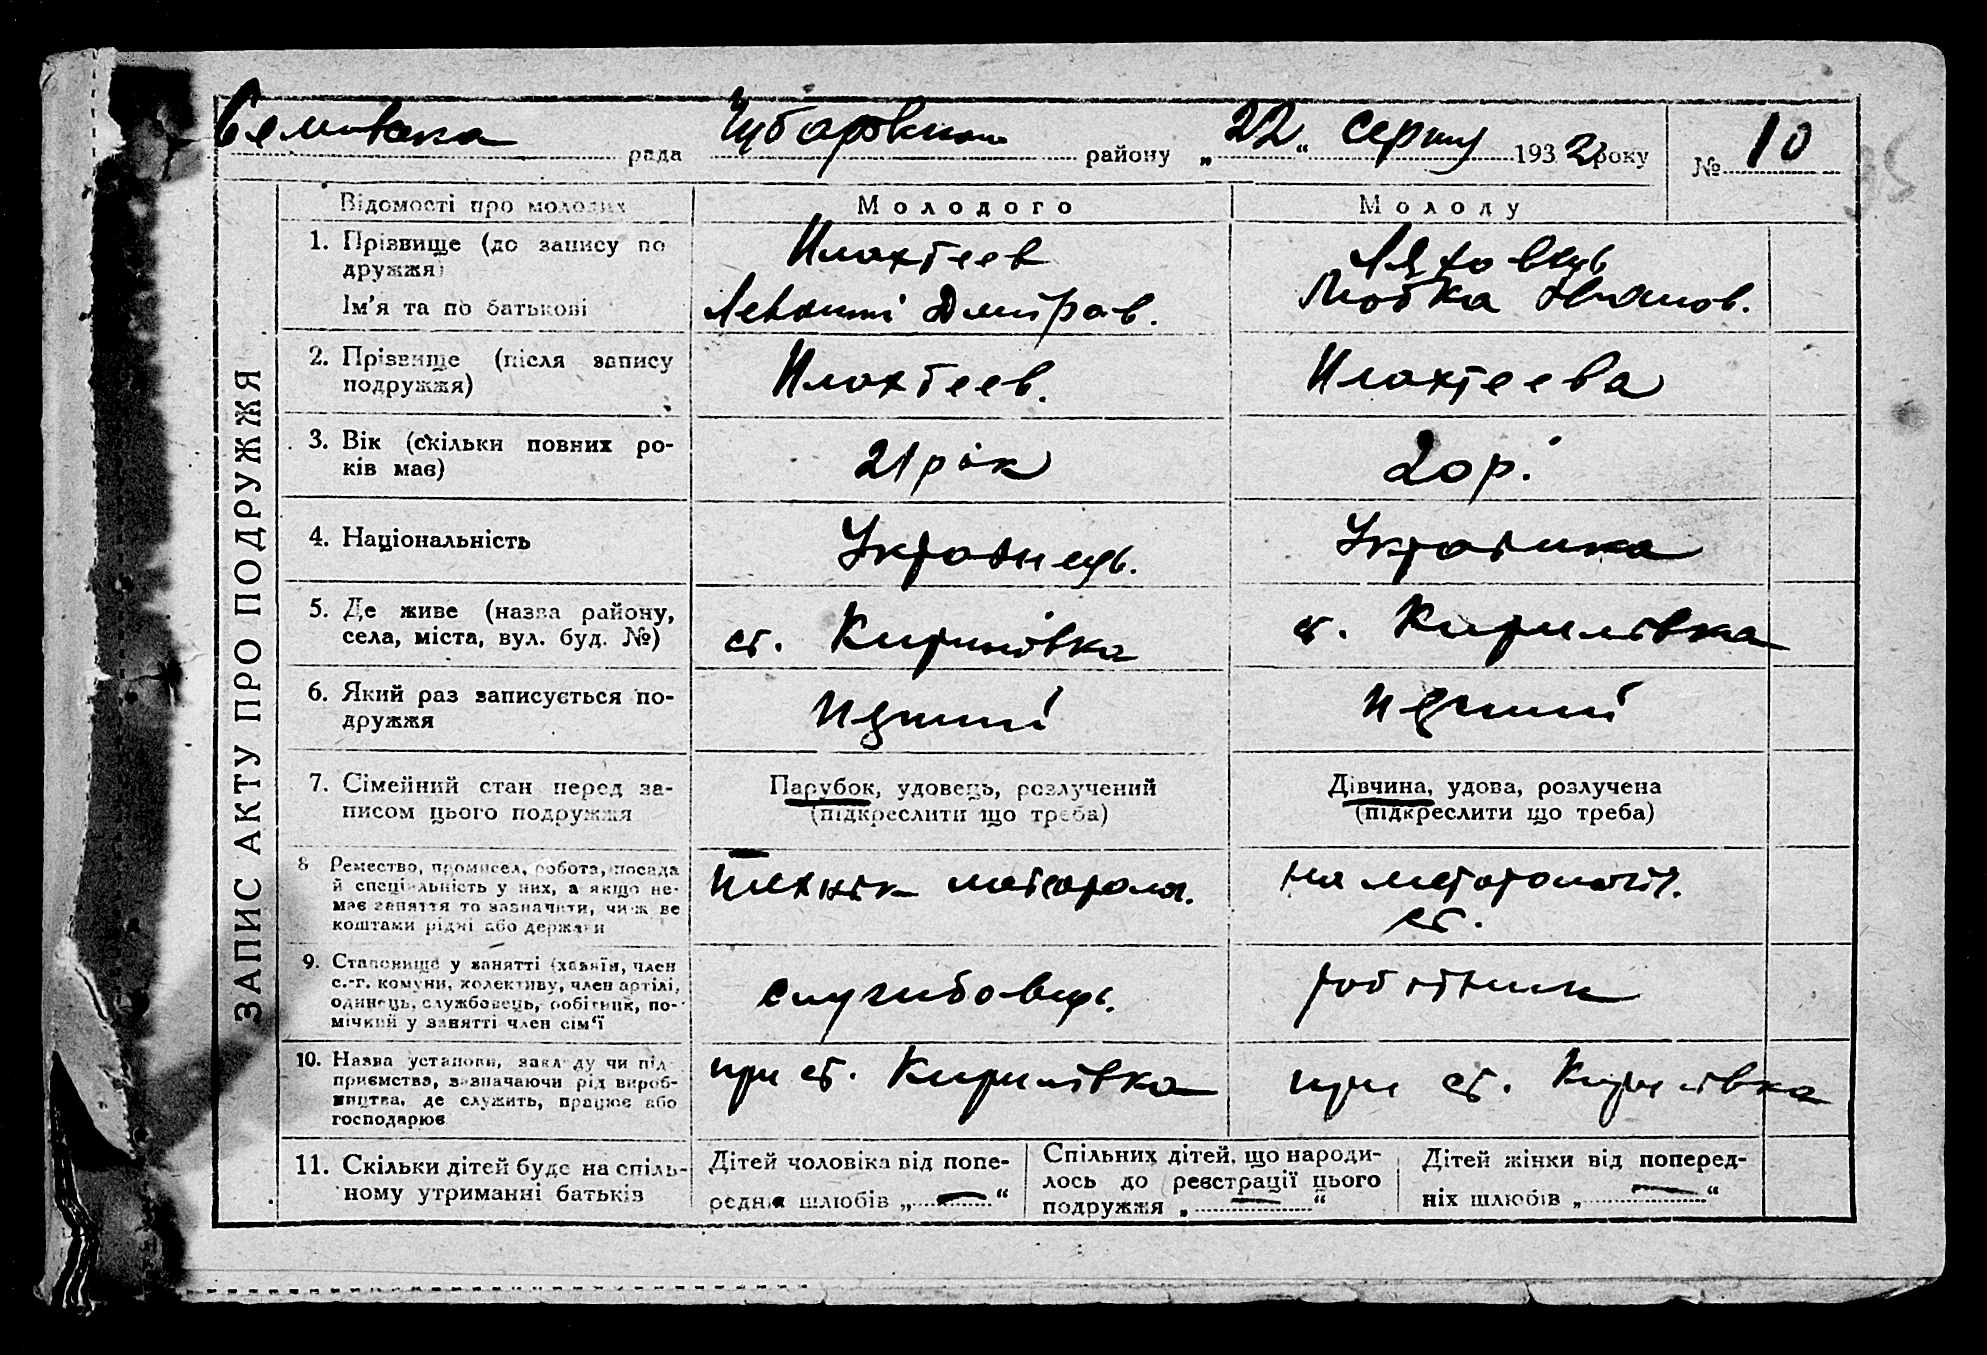 рада Чубарівка району „22“ серпня 1932 року № 10
ЗАПИС АКТУ ПРО ПОДРУЖЖЯ
Відомості про молодих Молодого Молоду
1. Прізвище (до запису по
дружжя)
Ім'я та по батькові
Дмитров. Іванов.
2. Прізвище (після запису
подружжя)
3. Вік (скільки повних ро-
ків має)
21 рік 20 р.
4. Національність
Українець. Українка
5. Де живе (назва району,
села, міста, вул. буд. №)
ст. Кирилівка ст. Кирилівка
6. Який раз записується по-
дружжя
перший перший
7. Сімейний стан перед за-
писом цього подружжя
Парубок, удовець, розлучений
(підкреслити що треба)
Дівчина, удова, розлучена
(підкреслити що треба)
8 Ремество, промисел, робота, посада
й спеціяльність у них, а якщо не-
має заняття то зазначити, чи ж ве
коштами рідні або держави
технік метеорол. на метеорологіч.
ст.
9. Становище у занятті (хазяїн, член
с.-г. комуни, колективу, член артілі,
одинець, службовець, робітник, по-
мічний у занятті член сім'ї
службовець. робітник
10. Назва установи, закладу чи під
приємства, зазначаючи рід вироб-
ництва, де служить, працює або
господарює
при ст. Кирилівка при ст. Кирилівка
11. Скільки дітей буде на спіль-
ному утриманні батьків
Дітей чоловіка від попе-
редніх шлюбів „—“
Спільних дітей, що народи-
лось до реєстрації цього
подружжя „—“
Дітей жінки від поперед-
ніх шлюбів „—“